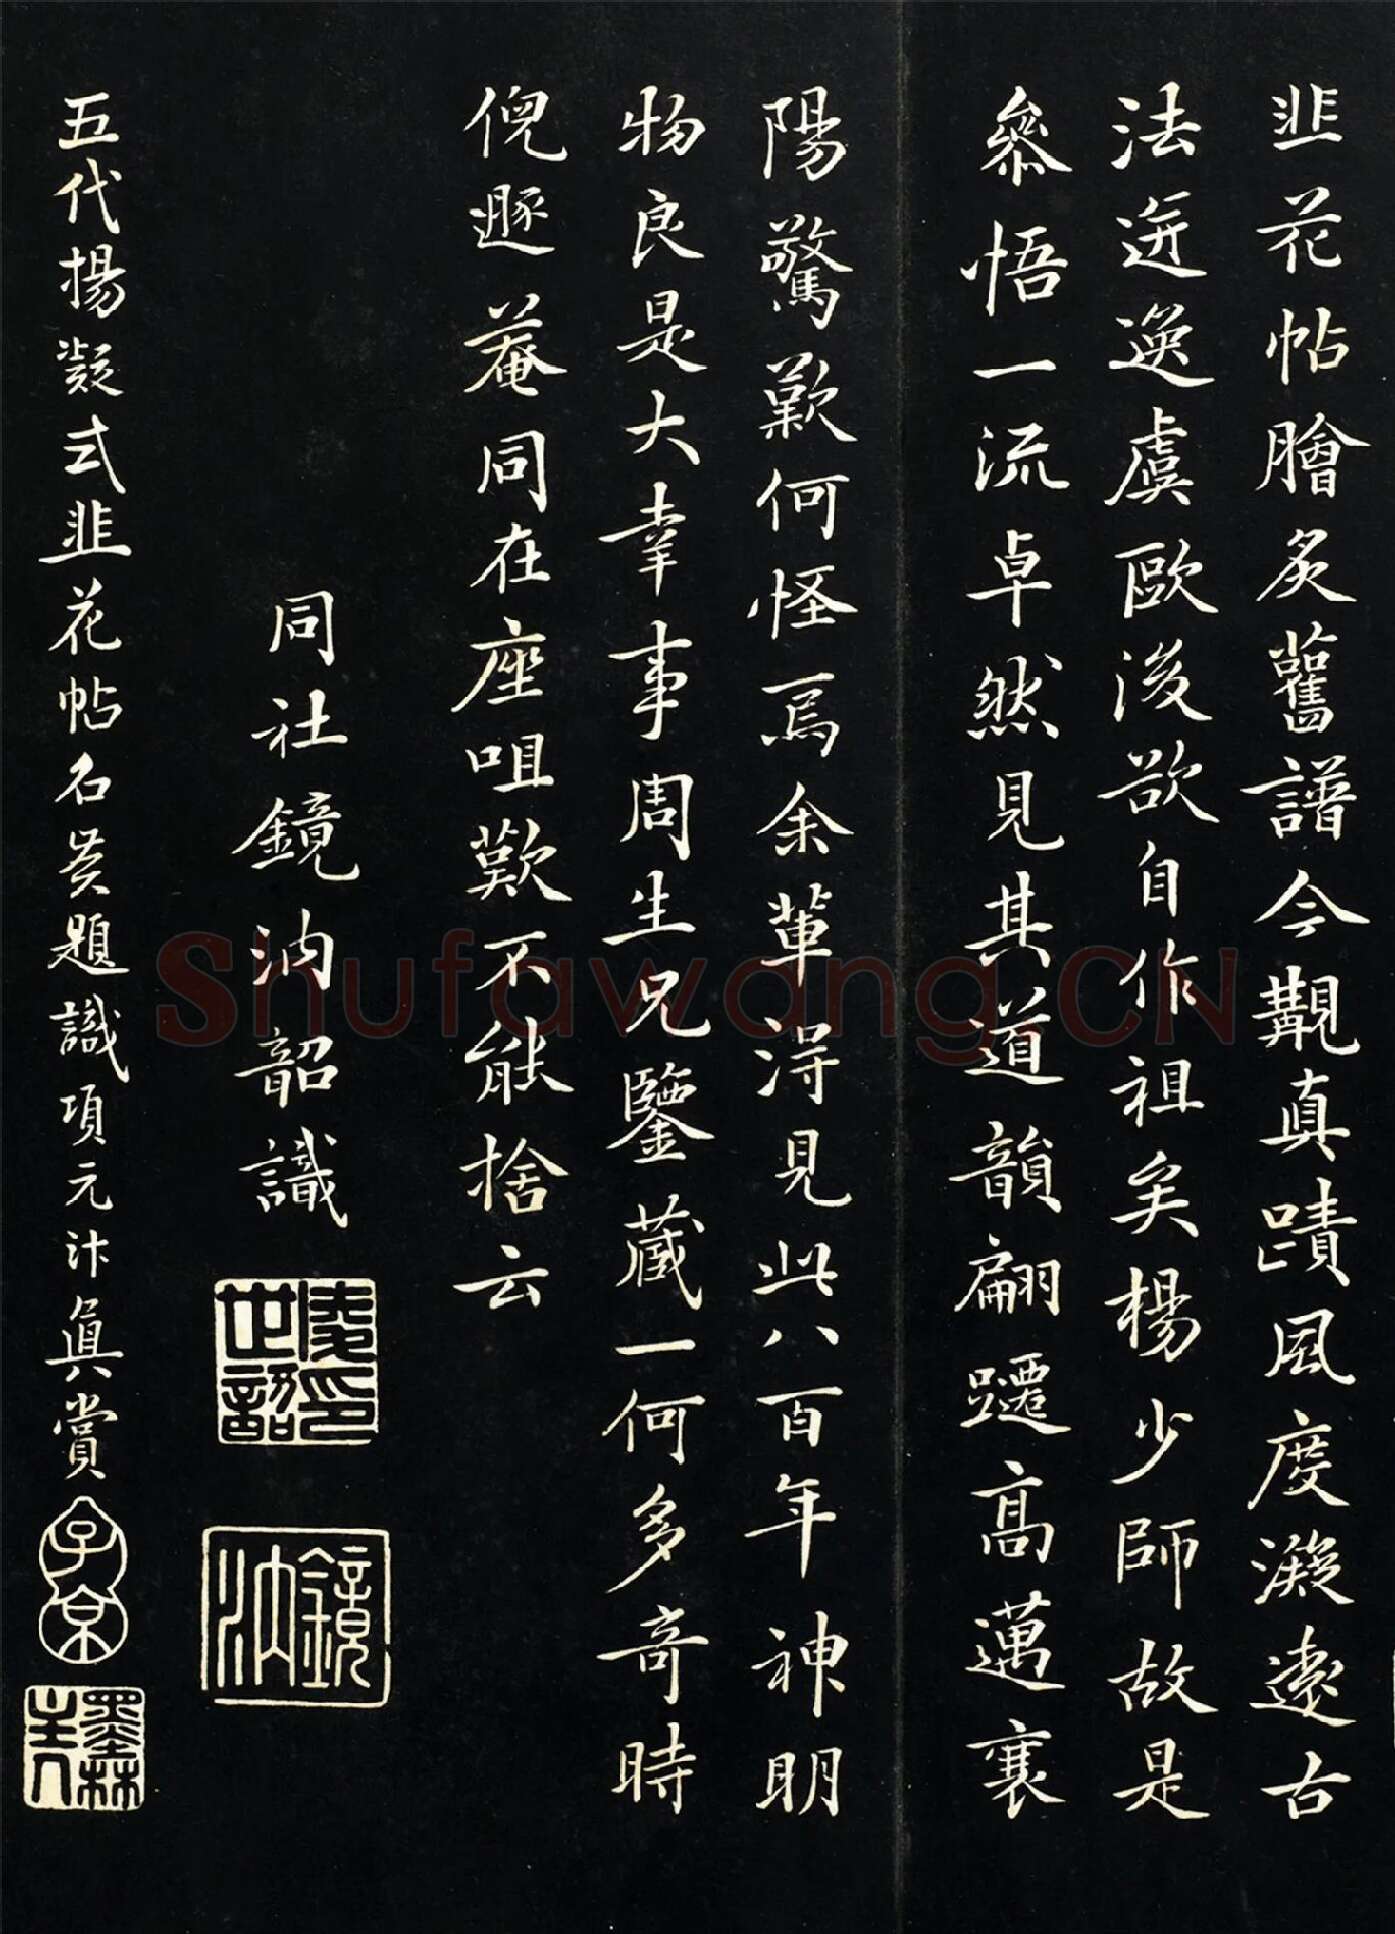 韭花帖膾炙舊譜今覯真蹟風度凝遠古
法迸逸虞歐後欲自作祖矣楊少師故是
參悟一流卓然見其道韻翩躚高邁襄
陽驚歎何怪焉余輩得見此八百年神明
物良是大幸事周生兄鑒藏一何多奇時
倪遯菴同在座咀歎不能捨云
同社鏡汭韶識
凌世韶印
鏡汭
五代楊凝式韭花帖名賢題識項元汴真賞
子京
墨林
Shufawang.CN